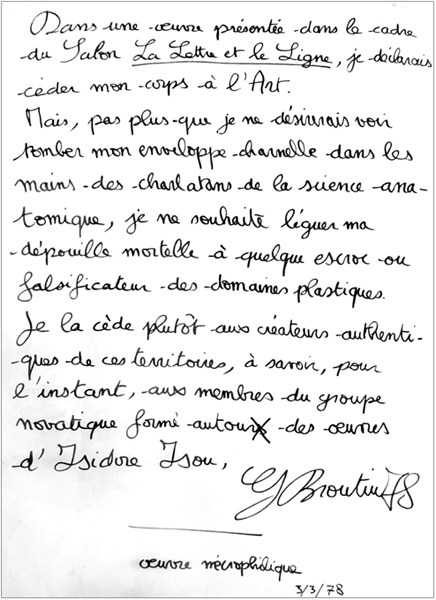 Dans une œuvre présentée dans le cadre
du Salon La Lettre et le Signe, je déclarais
céder mon corps à l'Art.
Mais, pas plus que je ne désirerais voir
tomber mon enveloppe charnelle dans les
mains des charlatans de la science ana-
tomique, je ne souhaite léguer ma
dépouille mortelle à quelque escroc ou
falsificateur des domaines plastiques.
Je la cède plutôt aux créateurs authenti-
ques de ces territoires, à savoir, pour
l'instant, aux membres du groupe
novatique formé autour des œuvres
d'Isidore Isou,
G Broutin 78
œuvre nécrophilique
3/3/78